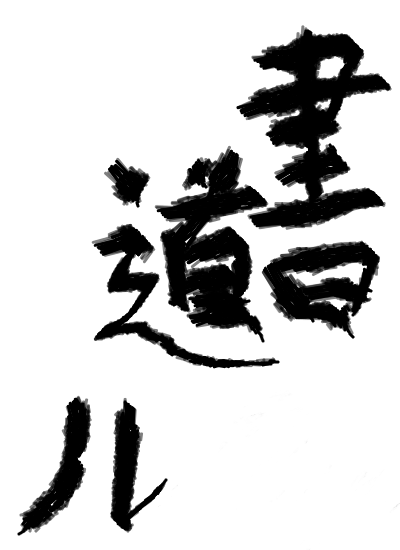 書
道
ル